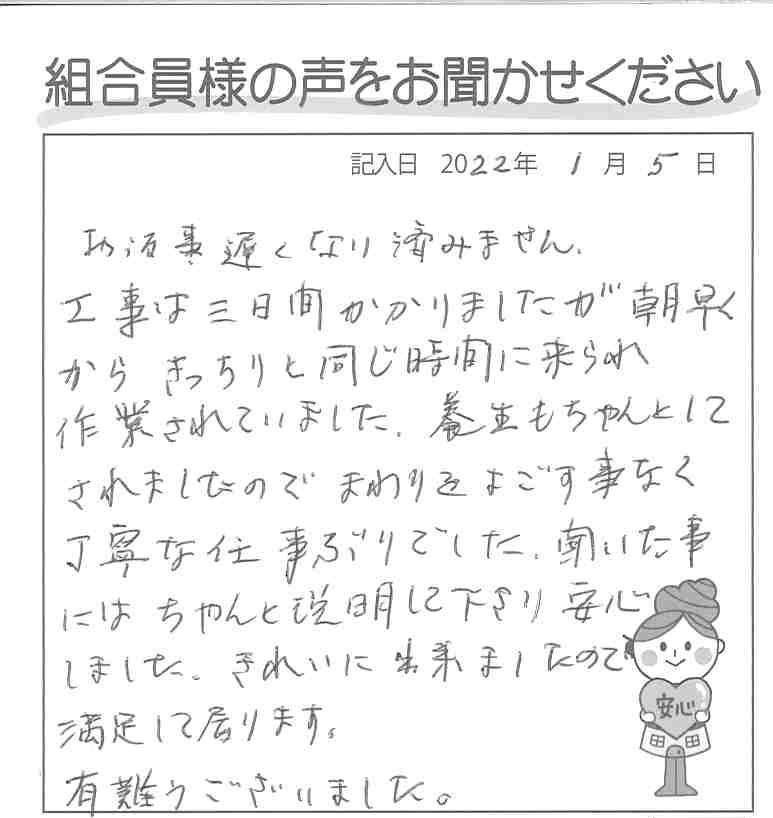 組合員様の声をお聞かせください
記入日 2022年 1月 5日
お返事遅くなり済みません.
工事は三日間かかりましたが朝早く
から きっちりと同じ時間に来られ
作業されていました. 養生もちゃんとして
されましたので まわりをよごす事なく
丁寧な仕事ぶりでした. 聞いた事
には ちゃんと説明して下さり 安心
しました. きれいに出来ましたので
満足して居ります。
有難うございました。
安心